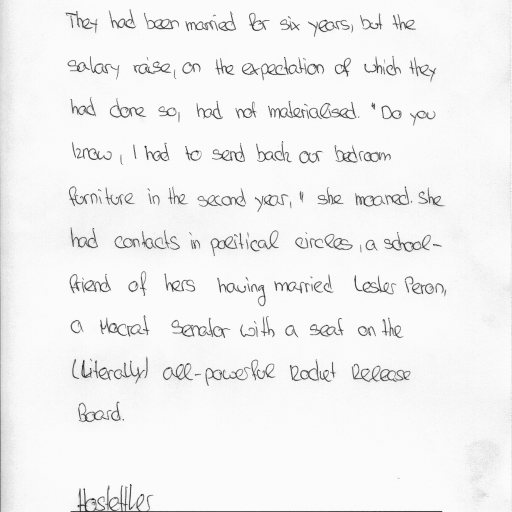 They had been married for six years, but the
salary raise, on the expectation of which they
had done so, had not materialised. "Do you
know, I had to send back our bedroom
furniture in the second year," she moaned. She
had contacts in political circles, a school-
friend of hers having married Lesler Peron,
a Mocrat Senator with a seat on the
(Literally) all-powerful Rocket Release
Board.
Hostettler